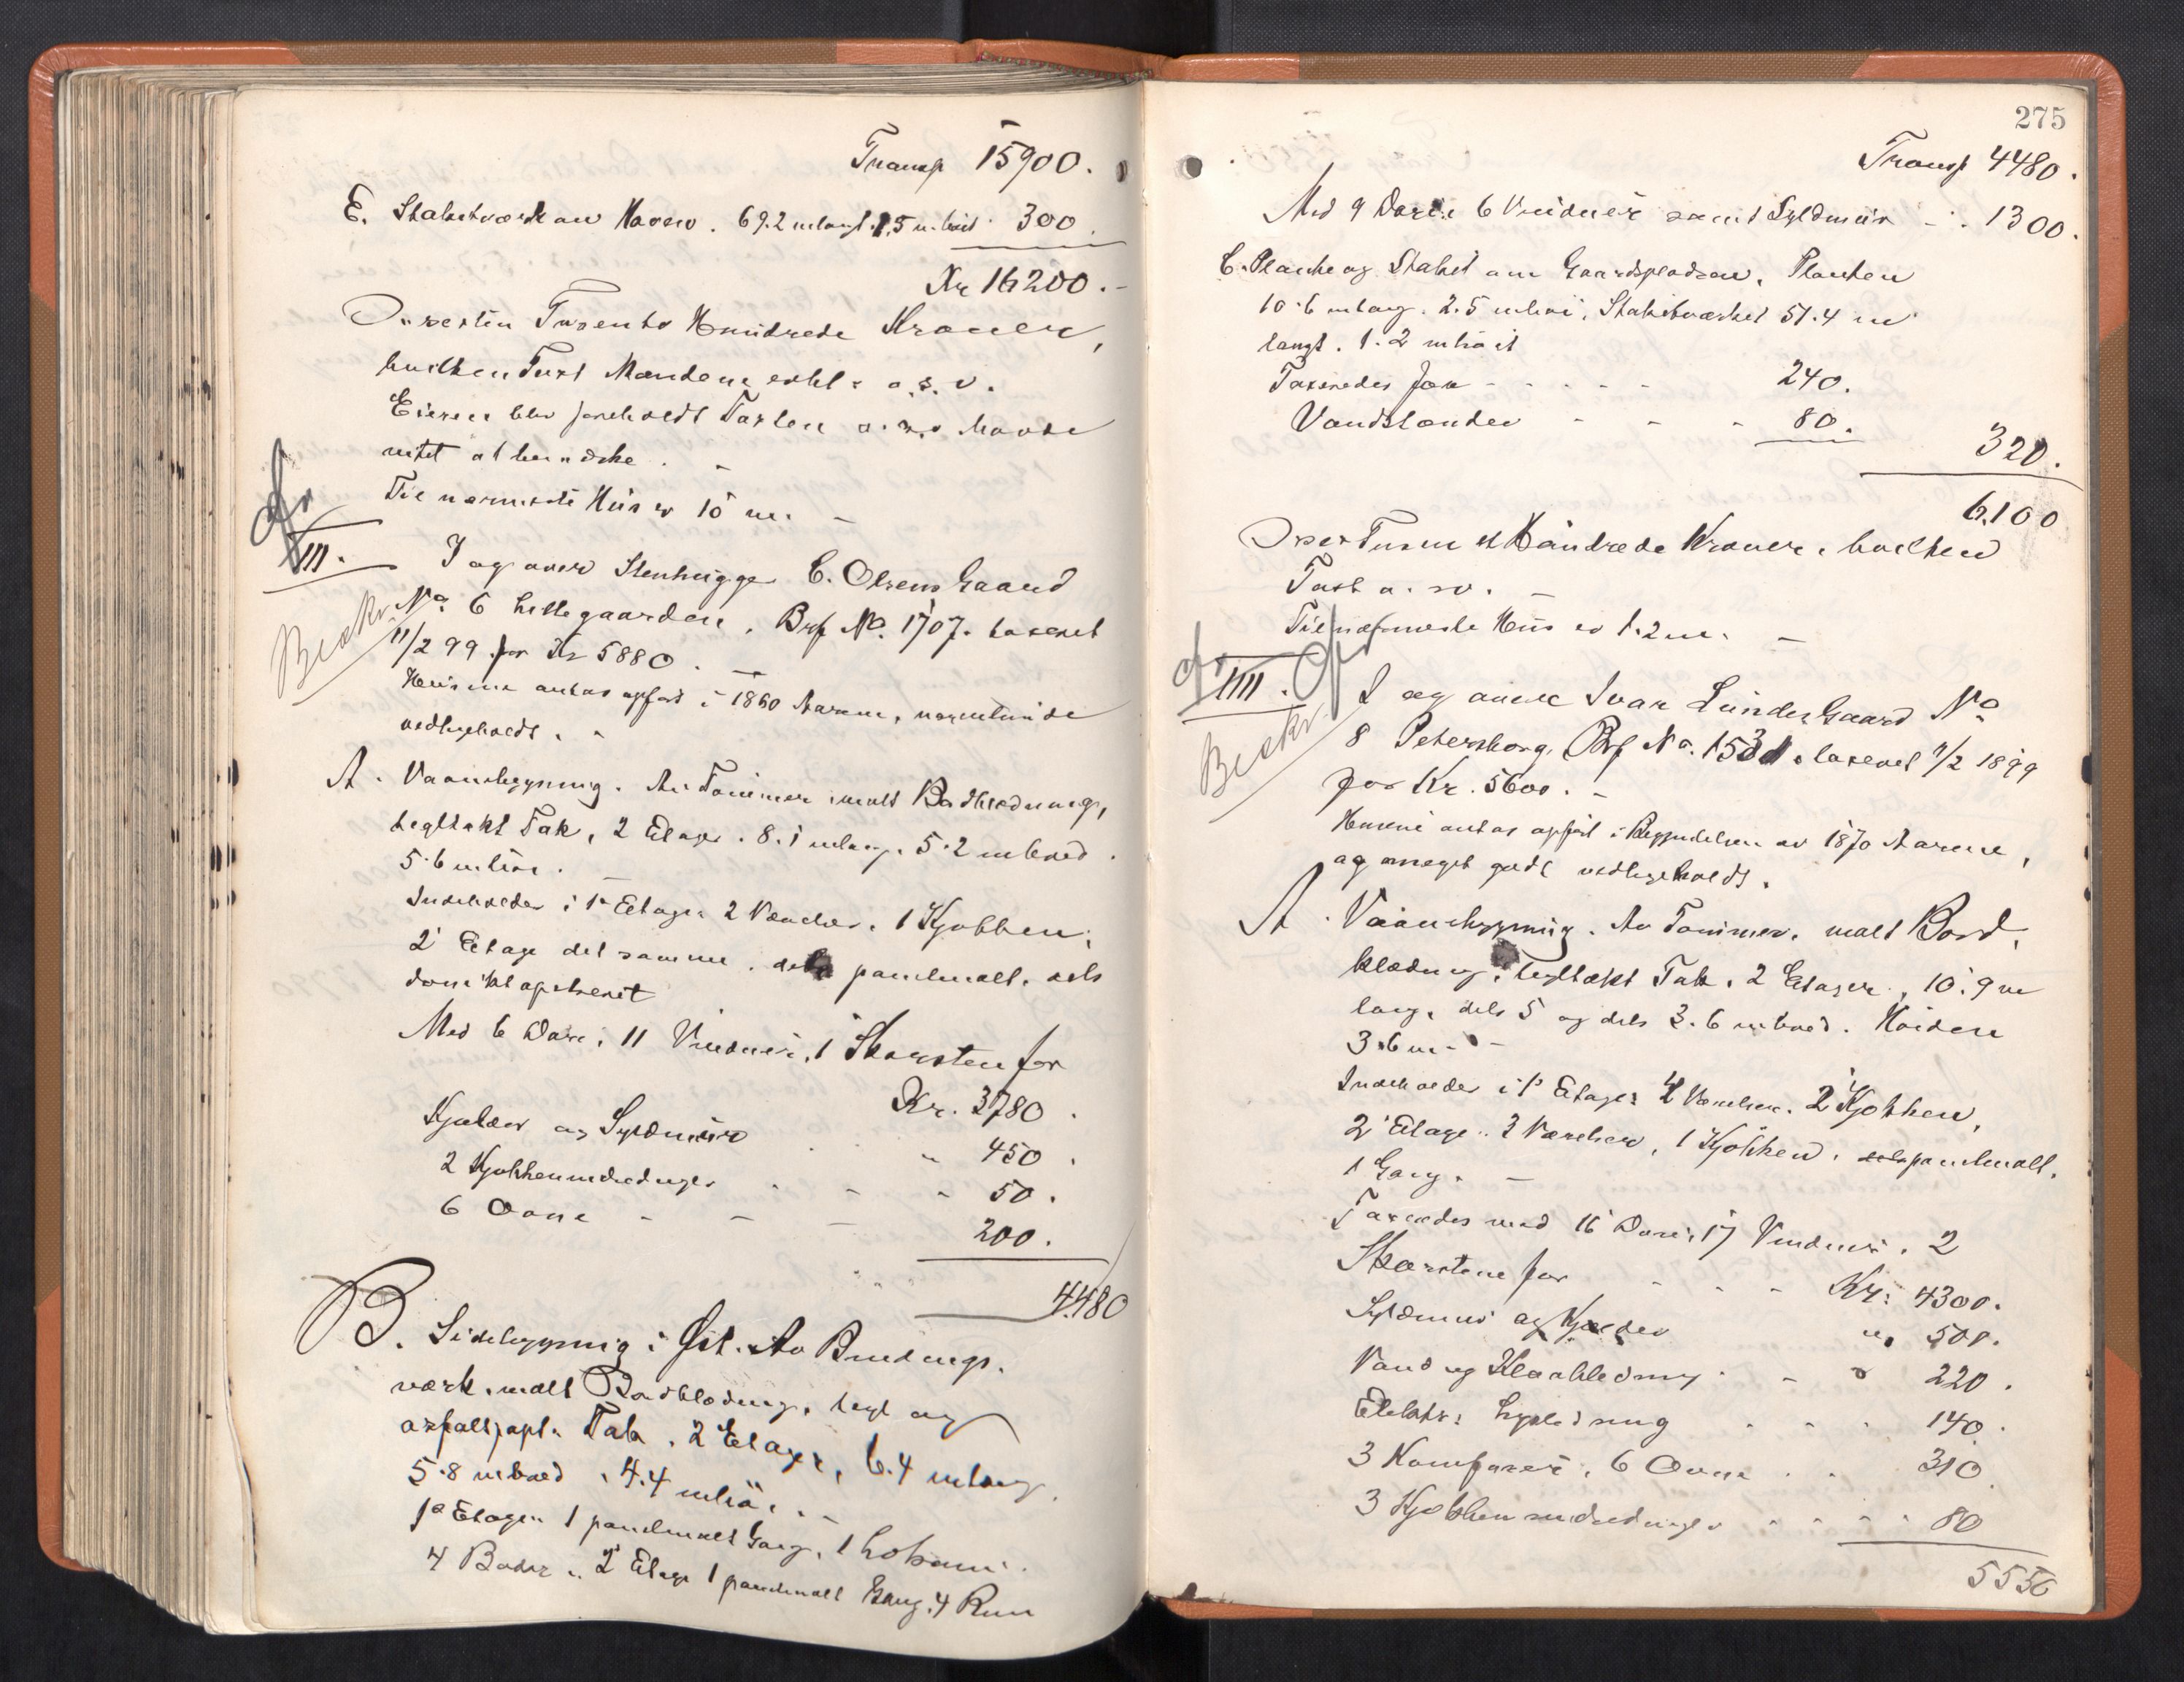 Transp 15900.
E. Stakitværk om Haven. 69.2 m langt. 1,5 m. høit 300.
Kr 16200.-
Sexten Tusento Hundrede Kroner,
hvilken Taxt Mændene erkl: o.s.v.
Eieren blev foreholdt Taxten o.s.v. havde
intet at bemærke. -
Til nærmeste Hus er 10 m. -
III. I og over Stenhugger C. Olsens Gaard
Beskr.
No. 6 Lillegaarden, Brf No. 1707. taxeret
11/2 99 for Kr 5880. -
Husene antas opført i 1860 Aarene,
vedligeholdt. -
A. Vaanbygning. Av Tømmer malt Bordklædning,
tegltækt Tak, 2 Etager. 8.1 m lang. 5.2 m bred.
5.6 m høi. -
Indeholder i 1' Etage: 2 Værelser. 1 Kjøkken,
2' Etage det samme. dels panelmalt. dels
opstrøket
Med 6 Døre, 11 Vinduer, 1 Skorsten for
Kr. 3780.
Kjælder og Syldmur " 450.
2 Kjøkkenindredninger - - " 50.
6 Ovne - - - 200.
4480
B. Sidebygning i Øst. Av Bindings-
værk, malt Bordklædning, tegl og
asfaltpapt. Tak. 2 Etager, 6.4 m lang
5.8 m bred, 4.4 m høi. -
1' Etage 1 panelmalt Gang, 1 Lokum.
4 Boder. 2' Etage 1 panelmalt Gang, 4 Rum
275
Transp 4480.
Med 9 Døre 6 Vinduer samt Syldmur - 1300.
C. Planke og Stakit om Gaardspladsen. Planken
10.6 m lang. 2.5 m høi, Stakitværket 51.4 m
langt. 1.2 m høit
Taxeredes for - - - - 240.
Vandstænder - - - 80.
320.
6.100
Sex Tusen et Hundrede Kroner, hvilken
Taxt o. sv. -
Til nærmeste Hus er 1.2 m. -
IIII. I og over Ivar Lunde Gaard No
Beskr.
8 Petersborg, Brf No. 153 d. taxeret 11/2 1899
for Kr. 5600. -
Husene antas opført i Begyndelsen av 1870 Aarene,
og meget godt vedligeholdt.
A. Vaanbygning. Av Tømmer. malt Bord-
klædning, tegltækt Tak. 2 Etager, 10.9 m
lang, dels 5 og dels 3.6 m bred. Høiden
3.6 m. -
Indeholder i 1' Etage: 4 Værelser. 2 Kjøkken,
2' Etage: 3 Værelser, 1 Kjøkken, panelmalt.
1 Gang. -
Taxeredes med 16 Døre, 17 Vinduer, 2
Skorstene for - - - Kr: 4300.
Syldmur og Kjælder " 500.
Vand og Kloakledning - " 220.
Elektr: Lysledning 140.
3 Komfurer, 6 Ovne 310
3 Kjøkkenindredninger 80
5550